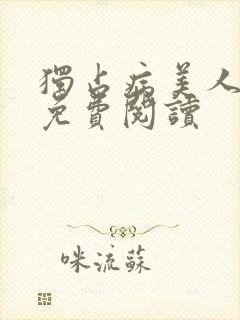 獨占病美人
免費閱讀
咪流蘇